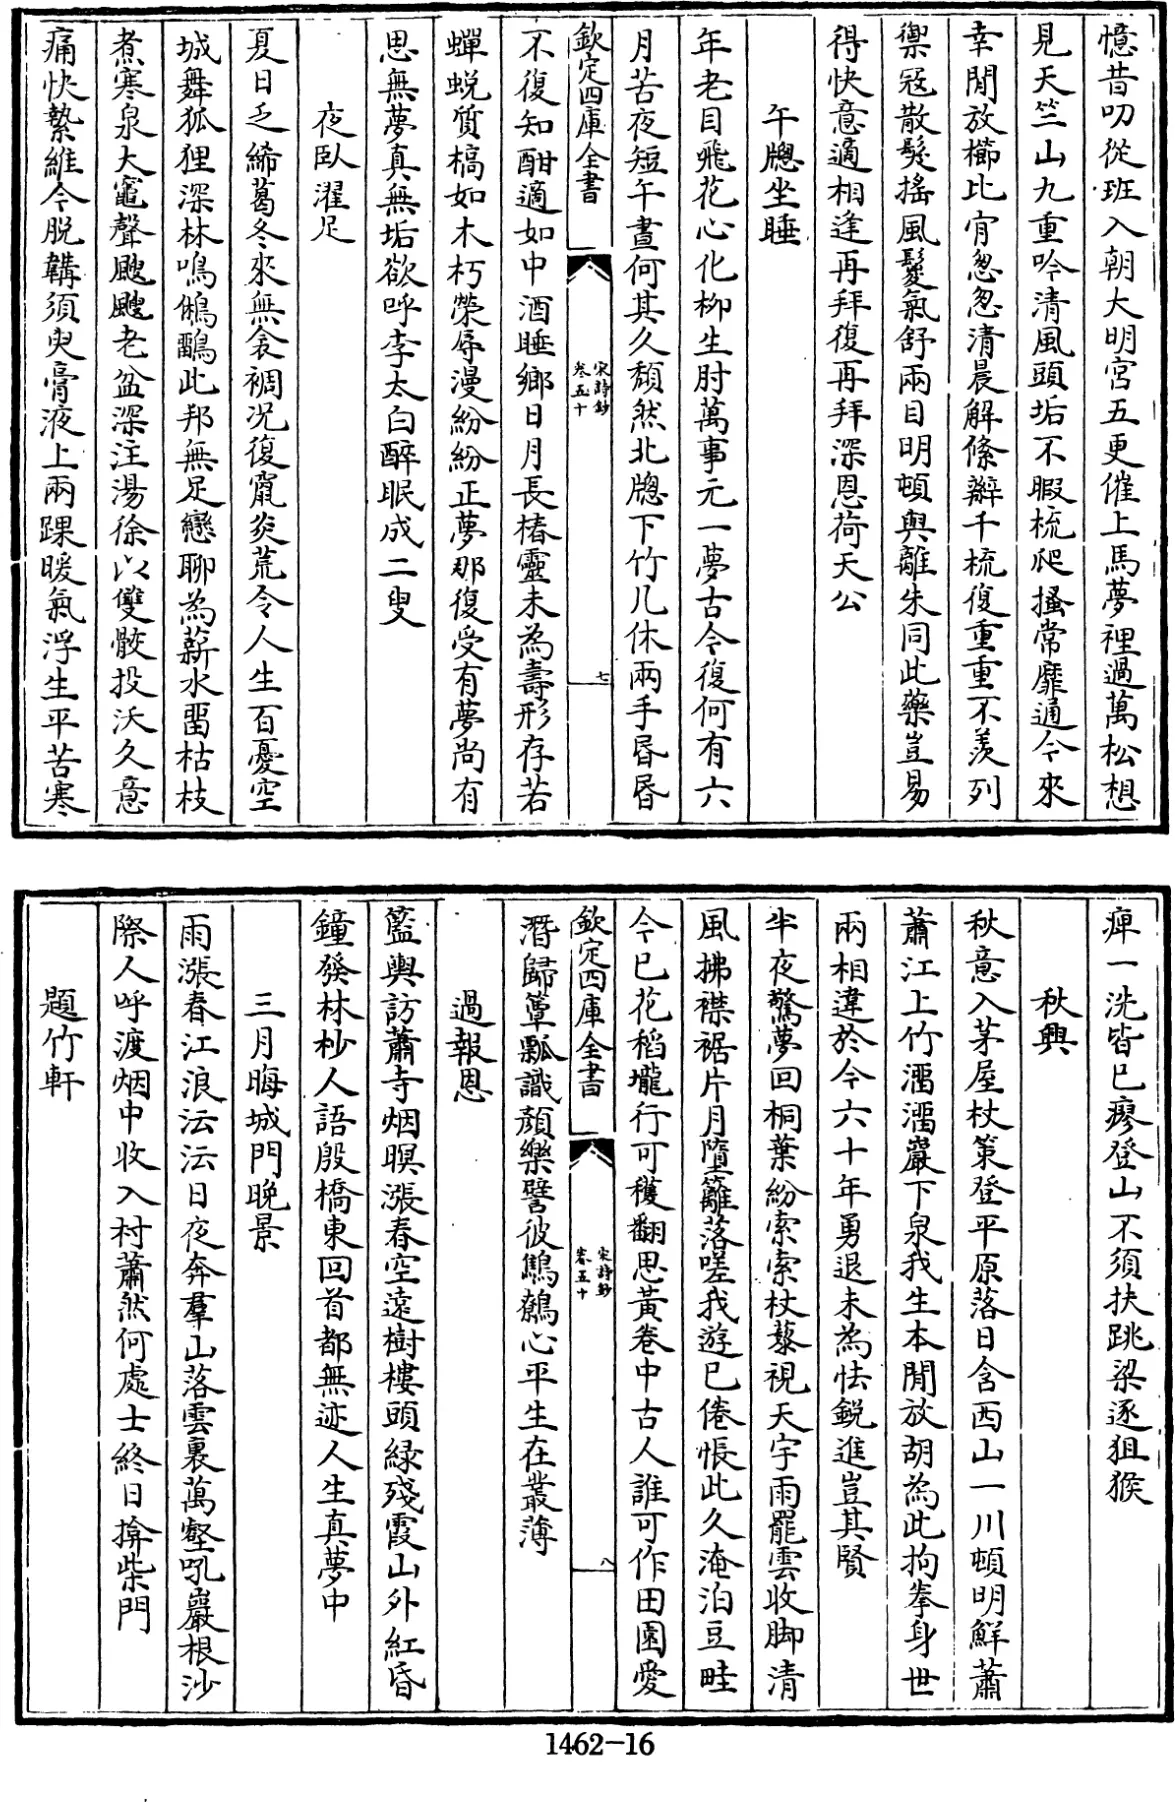 憶昔叨從班入朝大明宮五更催上馬夢裡過萬松想
見天竺山九重吟清風頭垢不暇梳爬搔常靡通今來
幸閒放櫛比宵怱怱清晨解絛辮千梳復重重不羨列
禦冦散髮搖風鬉氣舒兩目明頓與離朱同此藥豈易
得快意適相逢再拜復再拜深恩荷天公
午牕坐睡
年老目飛花心化柳生肘萬事元一夢古今復何有六
月苦夜短午晝何其久頹然北牕下竹几休兩手昬昬
欽定四庫全書
宋詩鈔
卷五十
七
不復知酣適如中酒睡鄉日月長椿靈未為壽形存若
蟬蛻質槁如木朽榮辱漫紛紛正夢那復受有夢尚有
思無夢真無垢欲呼李太白醉眠成二叟
夜臥濯足
夏日乏絺葛冬來無衾裯况復窮炎荒令人生百憂空
城舞狐狸深林鳴鵂鶹此邦無足戀聊為薪水畱枯枝
煮寒泉大竈聲颼颼老盆深注湯徐以雙骹投沃久意
痛快縶維今脱韝須臾膏液上兩踝暖氣浮生平苦寒
痺一洗皆已瘳登山不須扶跳梁逐狙猴
秋興
秋意入茅屋杖策登平原落日含西山一川頓明鮮蕭
蕭江上竹㶟㶟巖下泉我生本閒放胡為此拘拳身世
兩相違於今六十年勇退未為怯鋭進豈其賢
半夜驚夢回桐葉紛索索杖藜視天宇雨罷雲收脚清
風拂襟裾片月墮籬落嗟我遊已倦悵此久淹泊豆畦
今已花稻壠行可穫翻思黄卷中古人誰可作田園愛
欽定四庫全書
宋詩鈔
卷五十
八
潛歸簞瓢識顔樂譬彼鷦鷯心平生在叢薄
過報恩
籃輿訪蕭寺烟暝漲春空遠樹樓頭緑殘霞山外紅昏
鐘發林杪人語殷橋東回首都無迹人生真夢中
三月晦城門晚景
雨漲春江浪沄沄日夜奔羣山落雲裏萬壑吼巖根沙
際人呼渡烟中收入村蕭然何處士終日揜柴門
題竹軒
1462-16